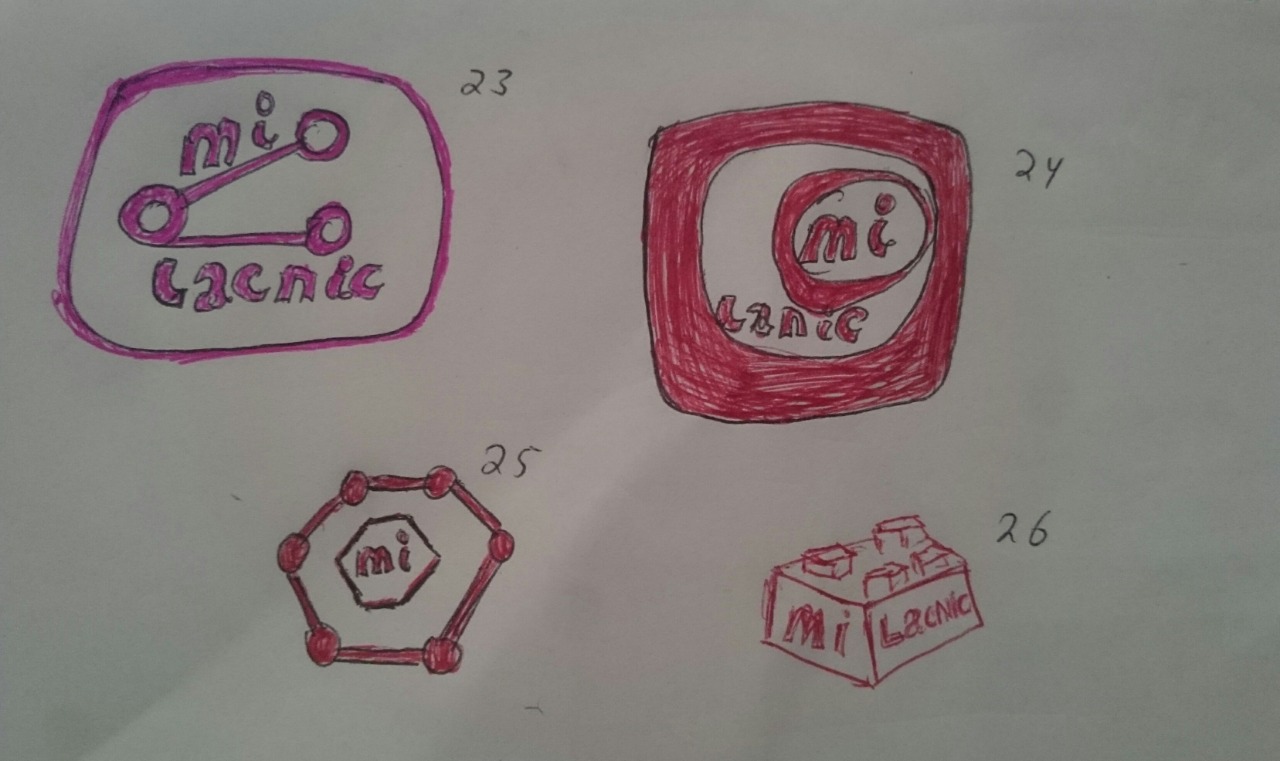 23
mi
Lacnic
24
mi
Lanic
25
mi
26
Mi
Lacnic